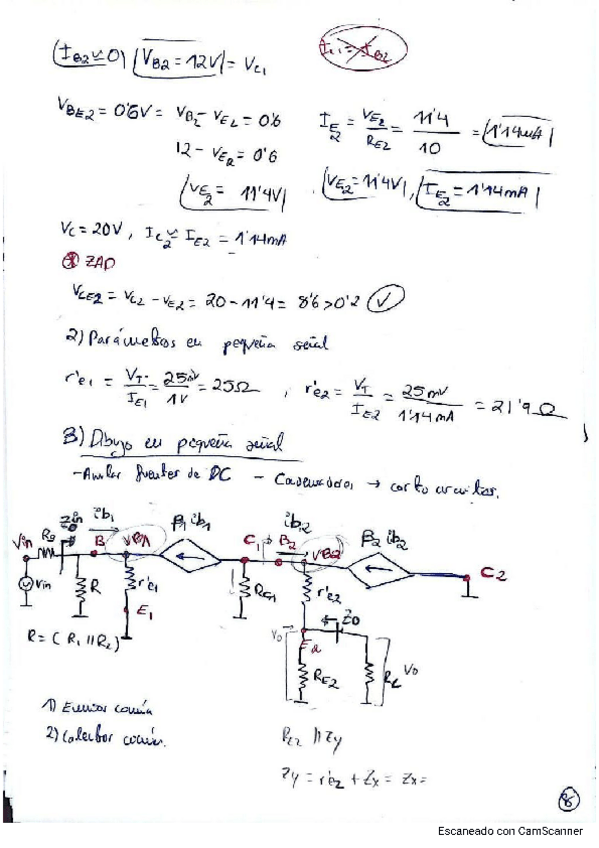 (I_B2 ≈ 0) V_B2 = 12V = V_C1
I_C1 = I_B2
V_BE2 = 0'6V = V_B2 - V_E2 = 0'6
12 - V_E2 = 0'6
V_E2 = 11'4V
I_E2 = V_E2/R_E2 = 11'4/10 = 1'14mA
V_E2 = 11'4V, I_E2 = 1'14mA
V_C = 20V, I_C2 ≈ I_E2 = 1'14mA
* ZAD
V_CE2 = V_C2 - V_E2 = 20 - 11'4 = 8'6 > 0'2 ✓
2) Parámetros en pequeña señal
r'e1 = V_T/I_E1 = 25mV/1V = 25Ω, r'e2 = V_T/I_E2 = 25mV/1'14mA = 21'9 Ω
3) Dibujo en pequeña señal
- Anular fuentes de DC - Condensadores → corto circuitos.
Zin ib1 β1 ib1 ib2 β2 ib2
Vin B VB1 C1 B2 VB2 C2
Vin R r'e1 E1 R_C1 r'e2
Zo
Vo E2
R = (R1 // R2) R_E2 R_L Vo
1) Emisor común
2) Colector común.
R_E2 // Zy
Zy = r'e2 + Zx = Zx =
8
Escaneado con CamScanner